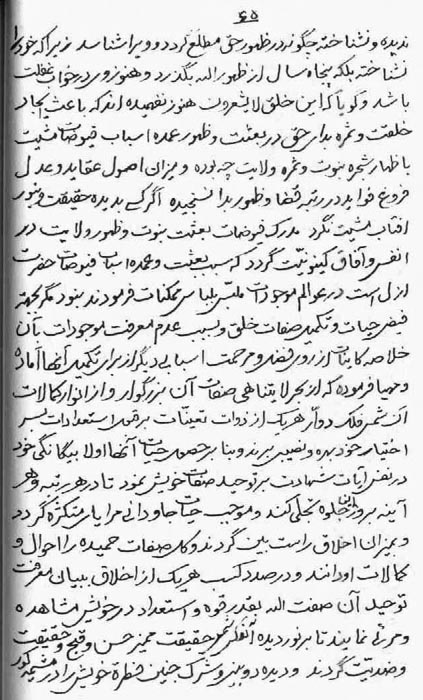 ۶۵
ندیده و نشناخته چگونه در ظهور حق مطلع گردد و ویرا شناسد زیرا که خود را
نشناخته بلکه پنجاه سال از ظهور الله بگذرد و هنوز وی در خواب غفلت
باشد و گویا که این خلق لایشعرون هنوز نفهمیده اند که باعث ایجاد
خلقت و ثمره بدای حق در بعثت و ظهور عمده اسباب فیوضات مشیت
باظهار شجره نبوت و ثمره ولایت چه بوده و میزان اصول عقاید و عدل
فروغ فواید در رتبه قضا و ظهور بدا نسنجیده اگر کسی بدیده حقیقت و نور
افتاب مشیت نگرد مدرک فیوضات بعثت نبوت و ظهور ولایت در
انفس و آفاق کینونیت گردد که سبب بعثت و عمده اسباب فیوضات حضرت
ازل است در عوالم موجودات ملبس بلباس ممکنات فرمودند نبود مگر بجهة
فیض حیات و تکمیل صفات خلق و بسبب عدم معرفت موجودات بآن
خلاصه کاینات از روی فضل و مرحمت اسبابی دیگر از برای تکمیل آنها آماده
و مهیا فرموده که از بحر لایتناهی صفات آن بزرگوار و از انوار کمالات
آن شمس فلک دوار هر یک از ذوات تعینات بر قدر استعدادات بسر
اختیار خود بهره و نصیبی برند و بنا بر حصول حیات آنها اولا بیگانگی خود
در نفس آیات شهادت بر توحید صفات خویش نمود تا در هر رتبه و هر
آینه بروز این جلوه تجلی کند و موجب حیات جاودانی مرایای متکثره گردد
و بمیزان اخلاق راست بین گردند و کل صفات حمیده را احوال و
کمالات او دانند و در صدد کسب هر یک از اخلاق ببیان معرفت
توحید آن صفت الله بقدر قوه و استعداد در خویش مشاهده
و مرئی نمایند تا بر نور دیده حقیقت ممیز حسن و قبح و حقیقت
و ضدیت گردند و دیده دو بینی و شرک جنین فطرة خویش را در مشیمه